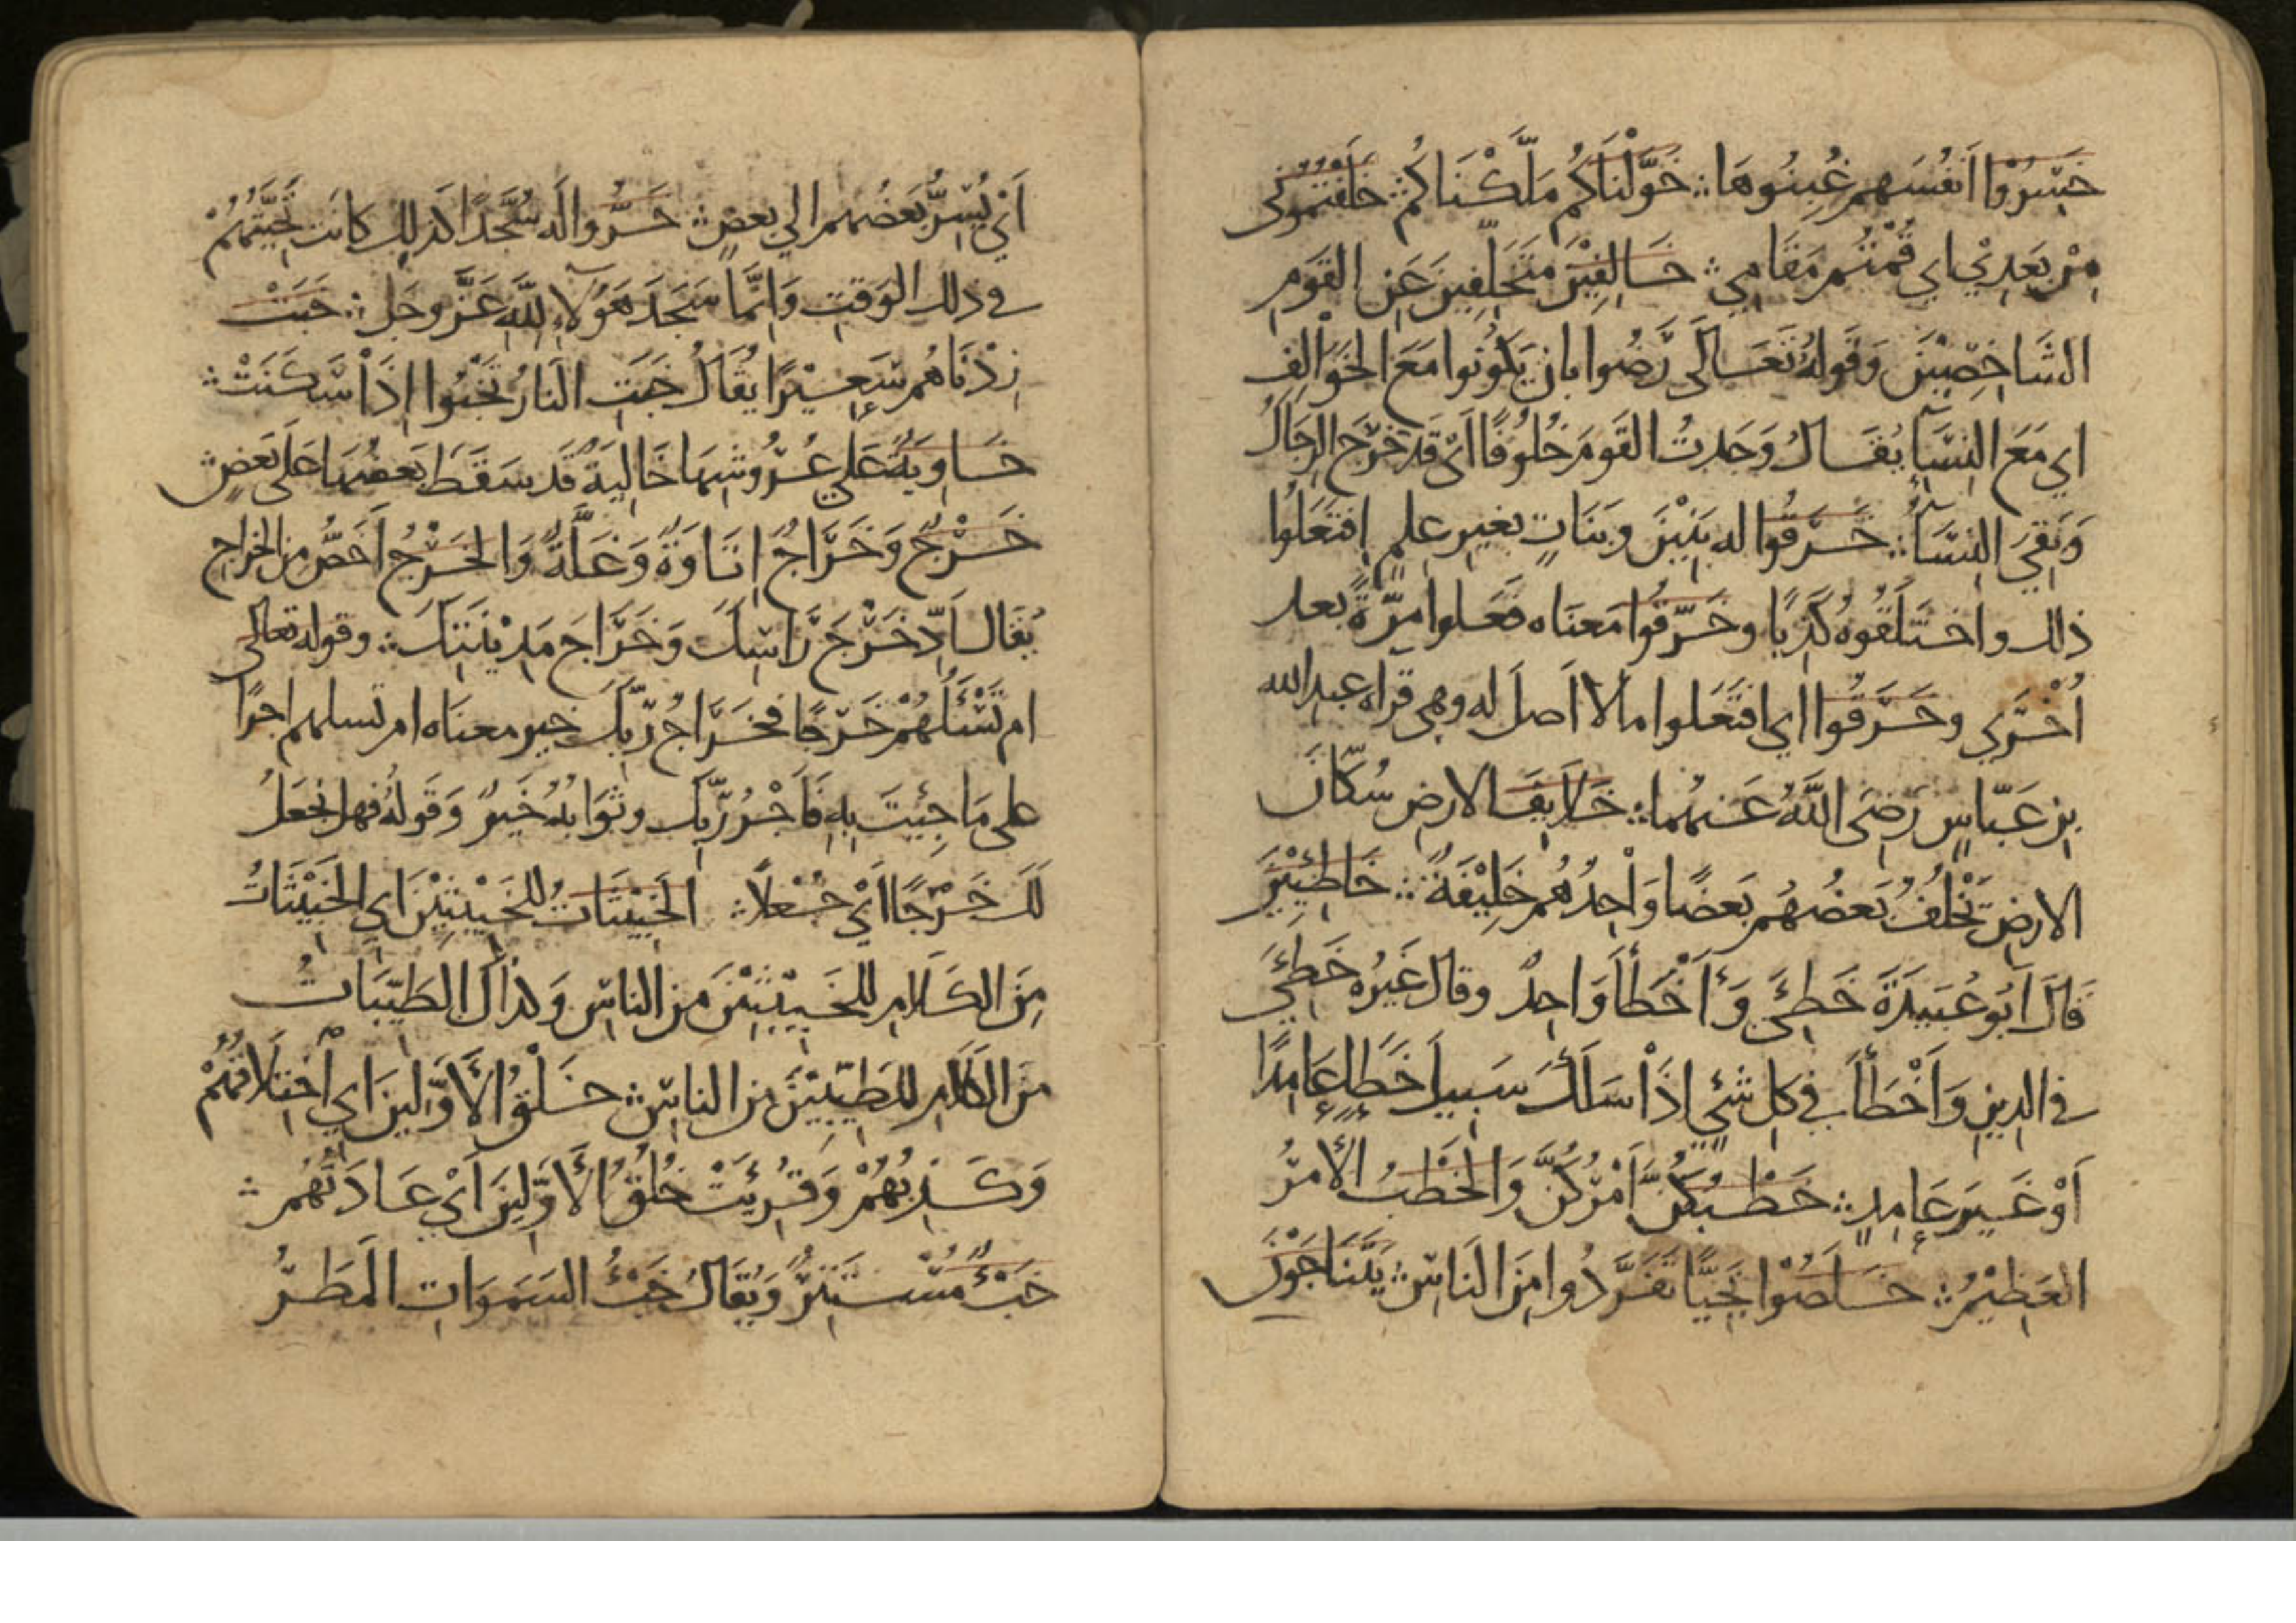 خَسِرُوْا اَنفُسَهم غُبِنُوهَا ؞ خَوَّلْنَاكُم مَلَّكْنَاكُم ؞ خَلَفْتُمُونِى
مِنْ بَعدِيْ اي قُمْتُم مَقَامِي ؞ خَالِفِيْنَ مُتَخَلِّفِينَ عَنِ القَومِ
الشَّاخِصِيْنَ وَقَولهُ تَعَالَى رَضُوا بان يَكُونوا مَعَ الخَوَالِفِ
اي مَعَ النِسَآءِ يُقَالُ وَجَدتُ القَومَ خُلُوفًا اَىْ قَد خَرَجَ الرِجَالُ
وَبَقِيَ النِسَآءُ ؞ خَرَقُوا له بَنِيْنَ وبَنَاتٍ بغيرِ علمٍ اِفتَعَلُوا
ذلك واختَلَقُوه كَذِبًا وخَرَّقُوا معنَاه فَعَلوا مرّةً بعد
اُخْرَي وحَرَّفُوا اي افتَعَلوا ما لا اَصلَ له وهى قراه عبد الله
بنِ عَبّاسٍ رَضِىَ اللَّهُ عَنهُما ؞ خَلَايِفَ الارضِ سُكَّانَ
الارضِ يَخْلُفُ بَعضُهُم بَعضًا وَاحِدُهُم خَلِيْفَةٌ ؞ خَاطِئِيْنَ
قَالَ اَبُو عُبَيدَةَ خَطِئَ وَأَخْطَأَ وَاحِدٌ وقال غَيرُه خَطِئَ
في الدِينِ وَاَخْطَأَ في كلِ شَئٍ اِذَا سَلَكَ سَبِيلَ خَطَاءٍ عَامِدًا
اَوْ غَيرَ عَامِدٍ ؞ خَطْبُكُنَّ اَمْرُكُنَّ وَالخَطْبُ الأَمرُ
العَظِيْمُ ؞ خَلَصُوْا نَجِيًّا تَفَرَّدُوا مِنَ النَاسِ يَتَنَاجَوْنَ
اَيْ يُسِرُّ بَعضُهم الي بعضٍ ؞ خَرُّوا لَه سُجَّدًا كَذلِك كانَت تَحِيَّتُهُمْ
في ذلك الوَقتِ وَاِنَّمَا سَجَدَ هَؤلاءِ لِلَّهِ عَزَّ وجَل ؞ خَبَتْ
زِدْنَاهُم سَعِيْرًا يُقَالُ خَبَتِ النَارُ تَخْبُوا اِذَا سَكَنَتْ ؞
خَاوِيَةٌ عَلي عُرُوشِهَا خَالِيَةٌ قَد سَقَطَ بَعضُهَا عَلَى بَعضٍ ؞
خَرْجٌ وَخَرَاجٌ اِتَاوَةٌ وَغَلَّةٌ وَالخَرْجُ اَخَصُّ من الخراجِ
يُقَالُ اَدِّ خَرْجَ رَاسِكَ وَخَرَاجَ مَدِيْنَتِكَ ؞ وقوله تعالى
ام تَسْئَلُهُمْ خَرْجًا فخَرَاجُ رَبِّكَ خير معنَاه ام تسلهم اجرًا
على مَا جِئيتَ بِهِ فَاَجْرُ رَبِّكَ وثَوَابُهُ خَيرٌ وَقَولهُ فهل نَجعَلُ
لَكَ خَرْجًا اَيْ جُعْلًا ؞ الخَبِيْثَاتُ للخَبِيْثِيْنَ اي الخَبِيْثَاتُ
مِنَ الكَلَامِ للخَبِيْثِيْنَ مِن الناسِ وَكذاكَ الطَيِّبَاتُ
مِنَ الكَلَامِ للطَيِّبِيْنَ مِن الناسِ ؞ خَلْقُ الأَوَّلِينَ اي اخْتِلَاقُهُمْ
وَكَذِبُهُمْ وَقُرِئَتْ خُلُقُ الأَوَّلِينَ اَيْ عَادَتُهُم ؞
خَبْءٌ مُسْتَتِرٌ وَيُقَالُ خَبْءُ السَمَوَاتِ المَطَرُ